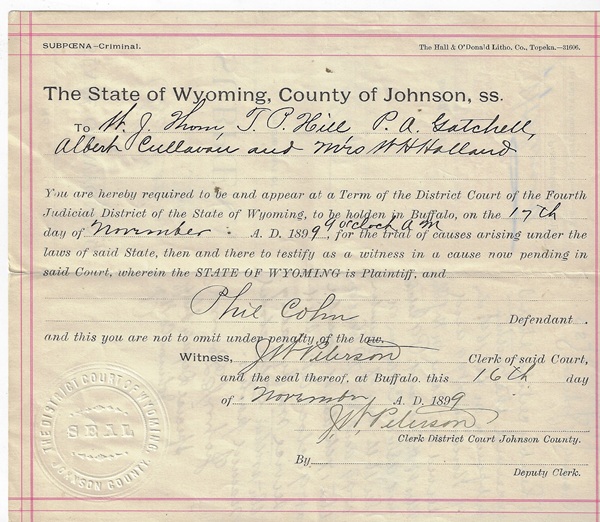 SUBPŒNA—Criminal.
The Hall & O'Donald Litho. Co., Topeka.—31606.
The State of Wyoming, County of Johnson, ss.
To W. J. Thom, T. P. Hill P. A. Gatchell,
Albert Cullavan and Mrs W H Holland
You are hereby required to be and appear at a Term of the District Court of the Fourth
Judicial District of the State of Wyoming, to be holden in Buffalo, on the 17th
day of November A. D. 1899 9 o'clock A M, for the trial of causes arising under the
laws of said State, then and there to testify as a witness in a cause now pending in
said Court, wherein the STATE OF WYOMING is Plaintiff, and
Phil Cohn
Defendant.
and this you are not to omit under penalty of the law.
Witness, J W Peterson Clerk of said Court,
and the seal thereof, at Buffalo. this 16th day
of November A. D. 1899
J. W. Peterson
Clerk District Court Johnson County.
By
Deputy Clerk.
THE DISTRICT COURT OF WYOMING
SEAL
JOHNSON COUNTY